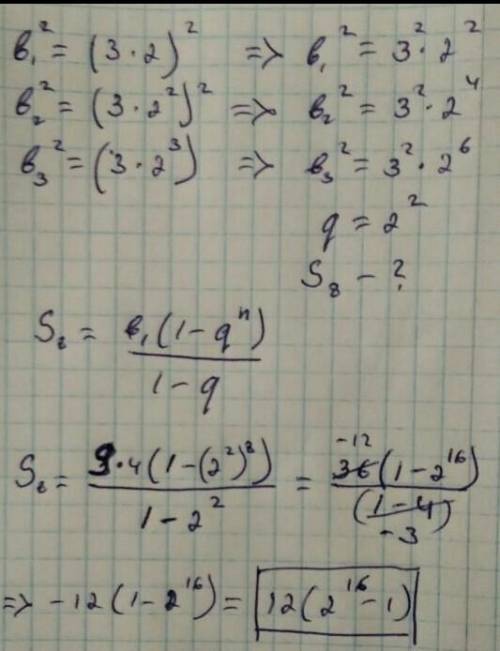 b₁² = (3 · 2)² => b₁² = 3² · 2²
b₂² = (3 · 2²)² => b₂² = 3² · 2⁴
b₃² = (3 · 2³) => b₃² = 3² · 2⁶
q = 2²
S₈ - ?
S₈ = b₁(1 - qⁿ) / 1 - q
S₈ = 9·4(1 - (2²)⁸) / 1 - 2² = -12 36(1 - 2¹⁶) / (1 - 4) -3
=> -12(1 - 2¹⁶) = 12(2¹⁶ - 1)